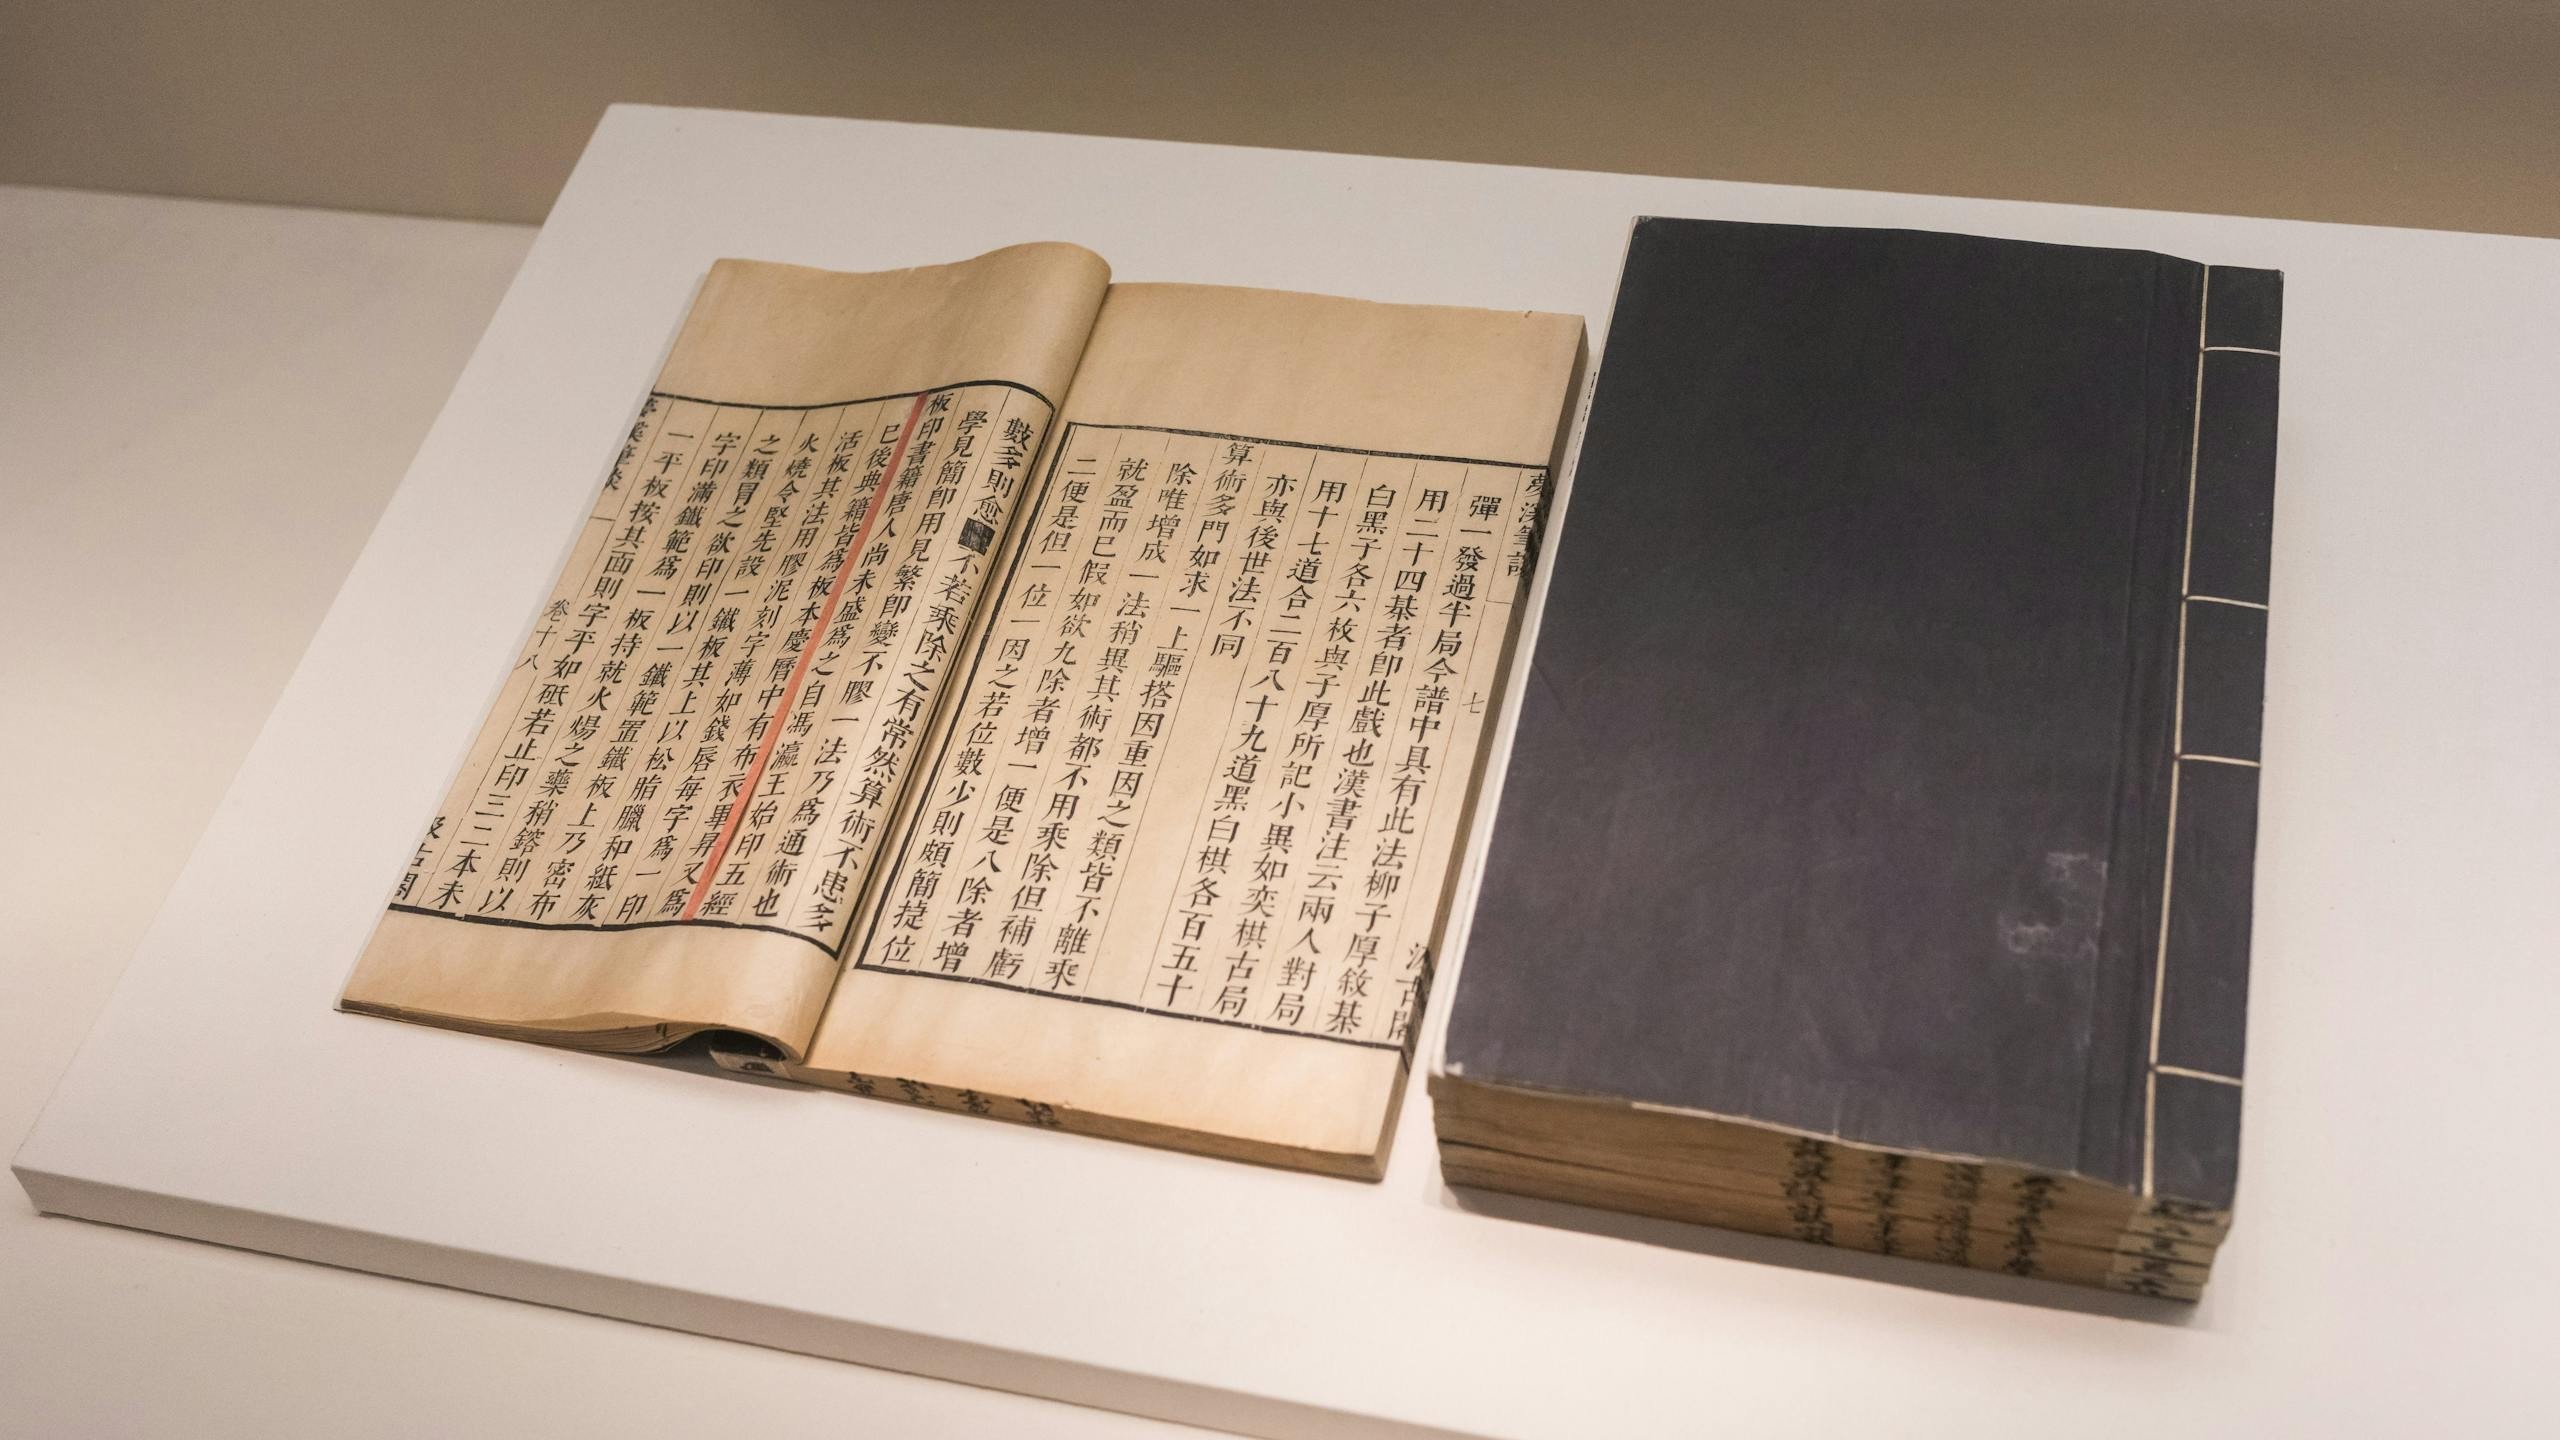 夢溪筆談 七 汲古閣
彈一發過半局今譜中具有此法柳子厚敘棊
用二十四棊者卽此戲也漢書注云兩人對局
白黑子各六枚與子厚所記小異如奕棋古局
用十七道合二百八十九道黑白棋各百五十
亦與後世法不同
算術多門如求一上驅搭因重因之類皆不離乘
除唯增成一法稍異其術都不用乘除但補虧
就盈而已假如欲九除者增一便是八除者增
二便是但一位一因之若位數少則頗簡捷位
數多則愈不若乘除之有常然算術不患多
學見簡卽用見繁卽變不膠一法乃爲通術也
板印書籍唐人尚未盛爲之自馮瀛王始印五經
已後典籍皆爲板本慶曆中有布衣畢昇又爲
活板其法用膠泥刻字薄如錢唇每字爲一印
火燒令堅先設一鐵板其上以松脂臘和紙灰
之類冒之欲印則以一鐵範置鐵板上乃密布
字印滿鐵範爲一板持就火煬之藥稍鎔則以
一平板按其面則字平如砥若止印三二本未
夢溪筆談 卷十八 汲古閣